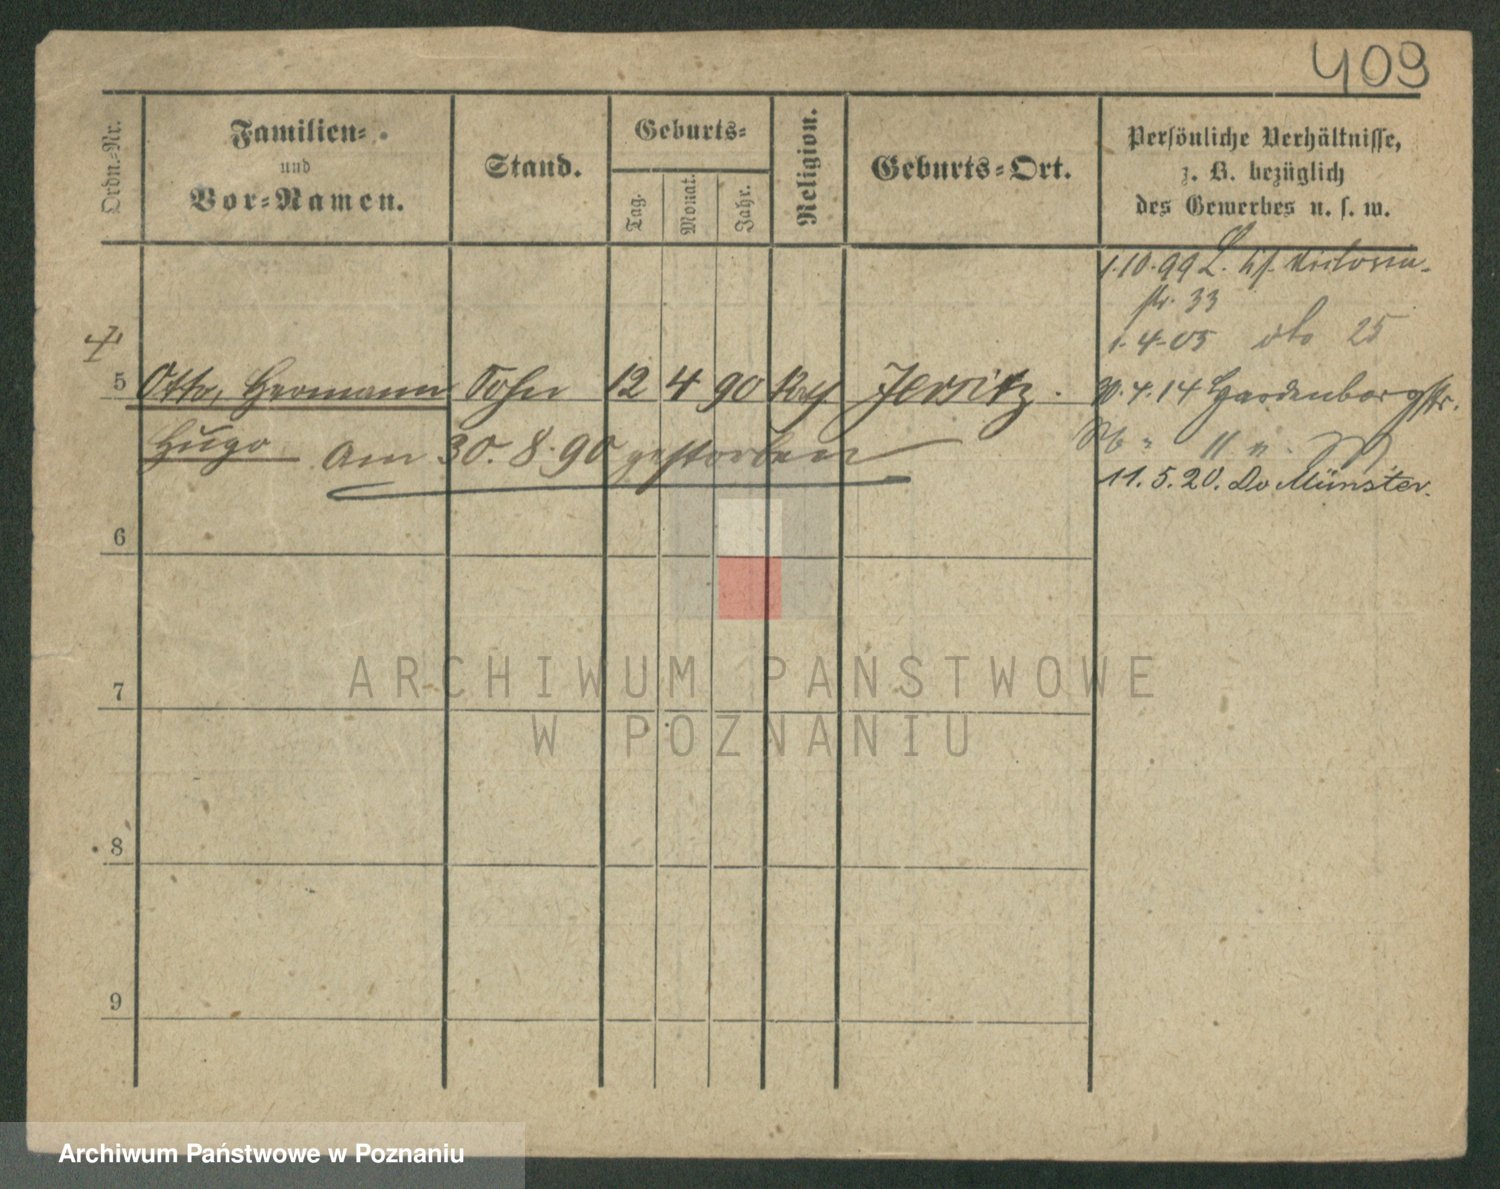 409
Ordn.-Nr.
Familien-
und
Vor-Namen.
Stand.
Geburts-
Tag.
Monat.
Jahr.
Religion.
Geburts-Ort.
Persönliche Verhältnisse,
z. B. bezüglich
des Gewerbes u. s. w.
1.10.99 L. Victoria-
str. 33
1.4.05 do 25
5 Otto, Hermann Sohn 12 4 90 kath Jersitz.
Hugo Am 30.8.90 gestorben
4.14 Hardenbergstr.
11.5.20. Do Münster.
6
7
8
9
ARCHIWUM PAŃSTWOWE
W POZNANIU
Archiwum Państwowe w Poznaniu